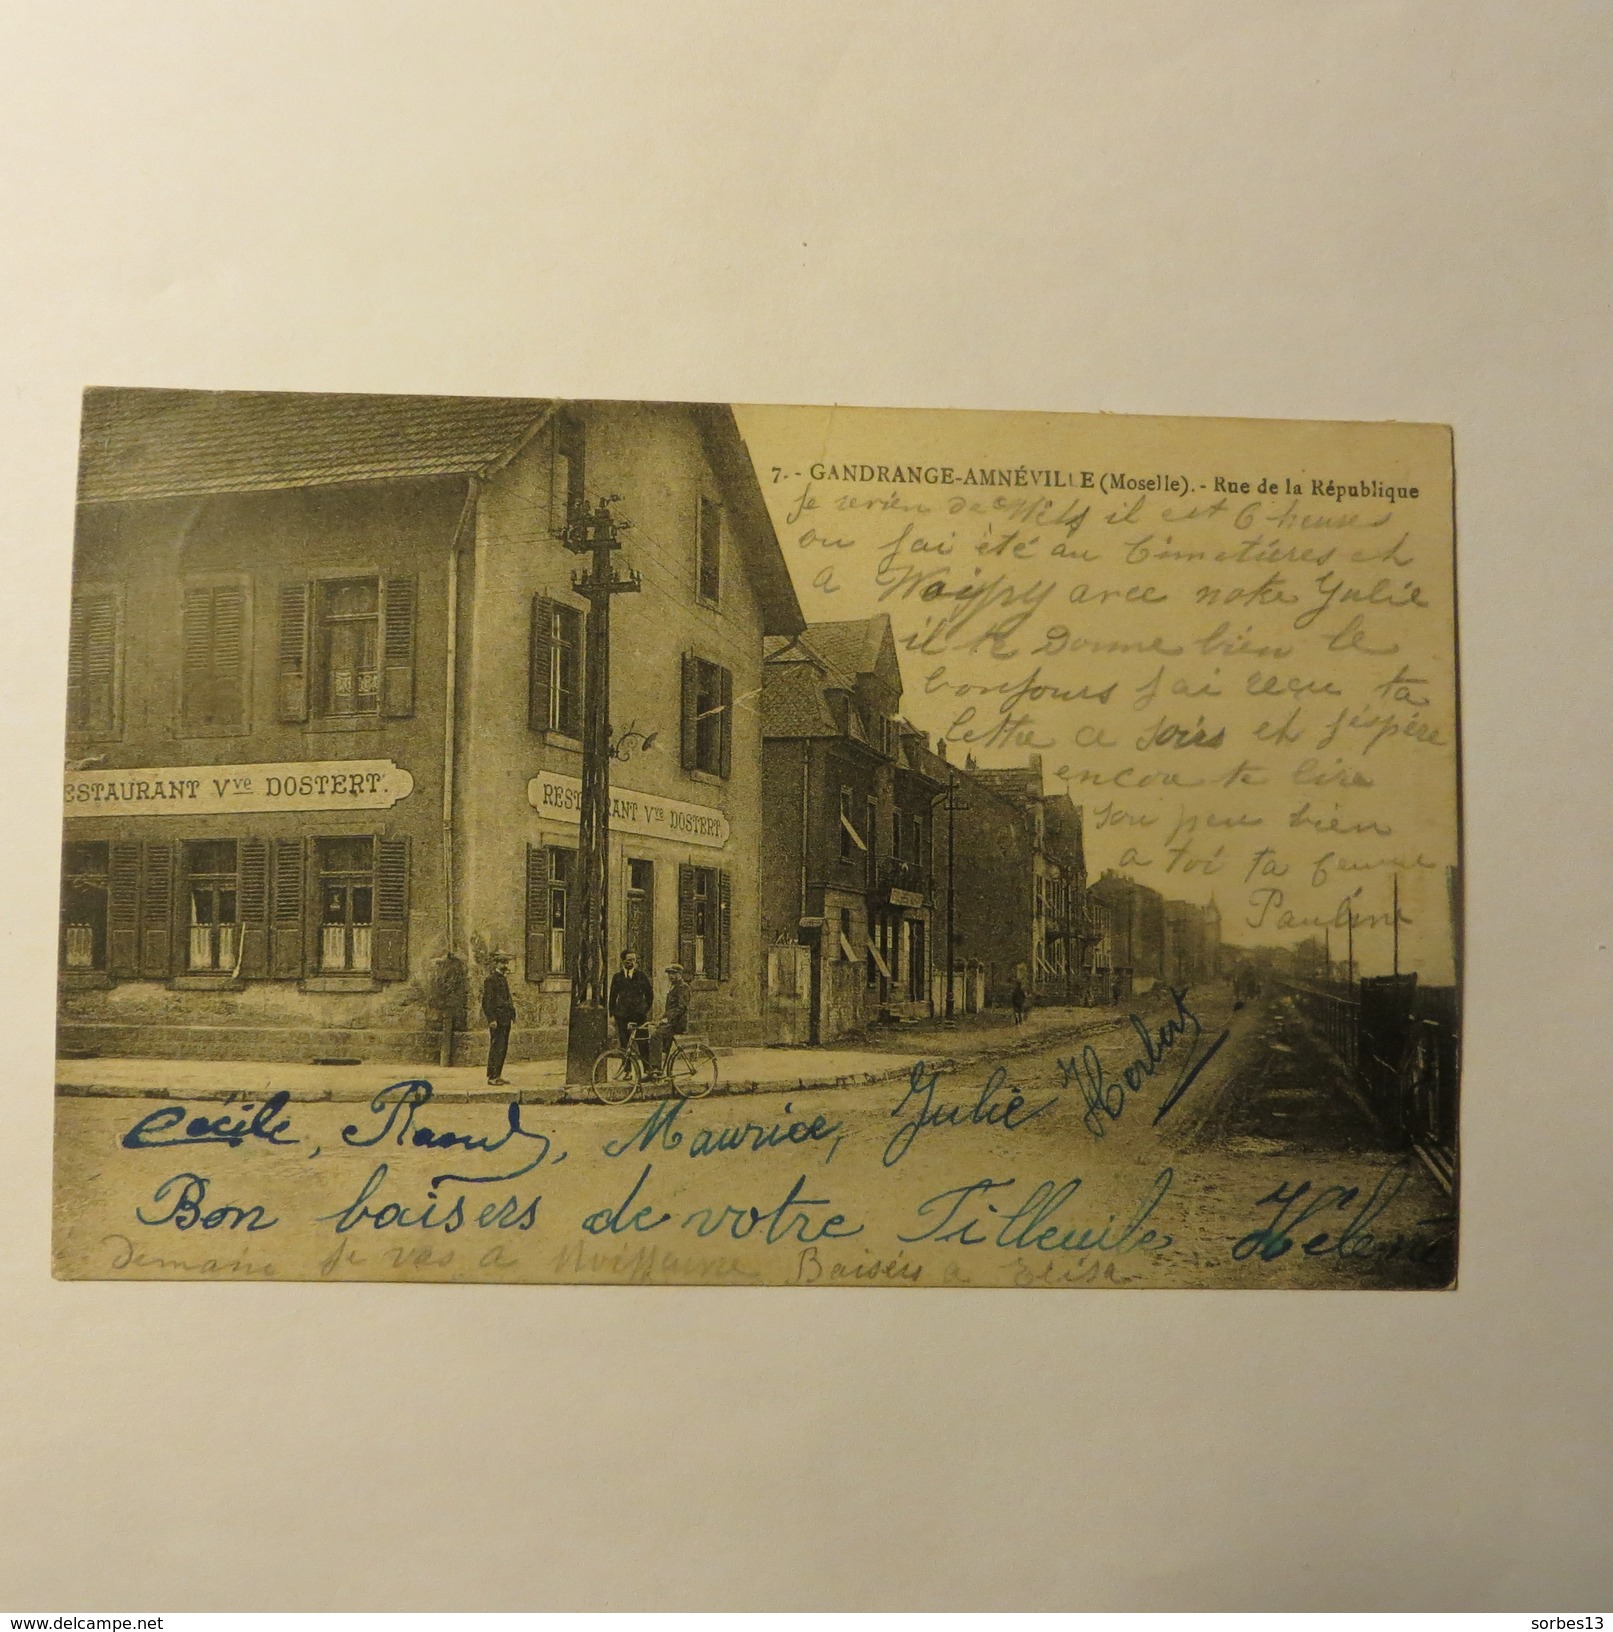 7. - GANDRANGE-AMNÉVILLE (Moselle). - Rue de la République
Je reviens de Metz il est 6 heures
ou j'ai été au Cimetières et
a Woippy avec notre Julie
il te Donne bien le
bonjours j'ai reçu ta
lettre ce soirs et j'éspére
encore te lire
sou peu bien
a toi ta femme
Pauline
ESTAURANT Vve DOSTERT.
RESTAURANT Vve DOSTERT.
Cécile, Raoul, Maurice, Julie Herbert
Bon baisers de votre Filleule Hélène
Demain je vas a Baisers a Elisa
www.delcampe.net
sorbes13